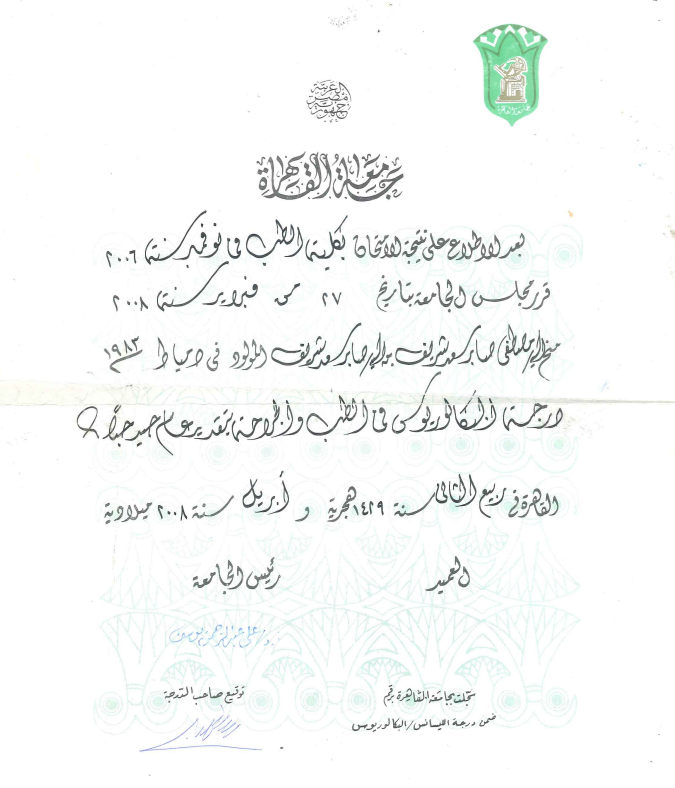 جمهورية مصر العربية
جامعة القاهرة
جامعة القاهرة
بعد الاطلاع على نتيجة الامتحان بكلية الطب فى نوفمبر سنة ٢٠٠٦
قرر مجلس الجامعة بتاريخ ٢٧ من فبراير سنة ٢٠٠٨
منح مصطفى صابر سعد شريف صابر سعد شريف المولود فى دمياط ١٩٨٣
درجة البكالوريوس فى الطب والجراحة بتقدير عام جيد جداً
القاهرة فى ربيع الثانى سنة ١٤٢٩ هجرية و أبريل سنة ٢٠٠٨ ميلادية
العميد رئيس الجامعة
سجلت بجامعة القاهرة برقم
ضمن درجة الليسانس/البكالوريوس
توقيع صاحب الدرجة